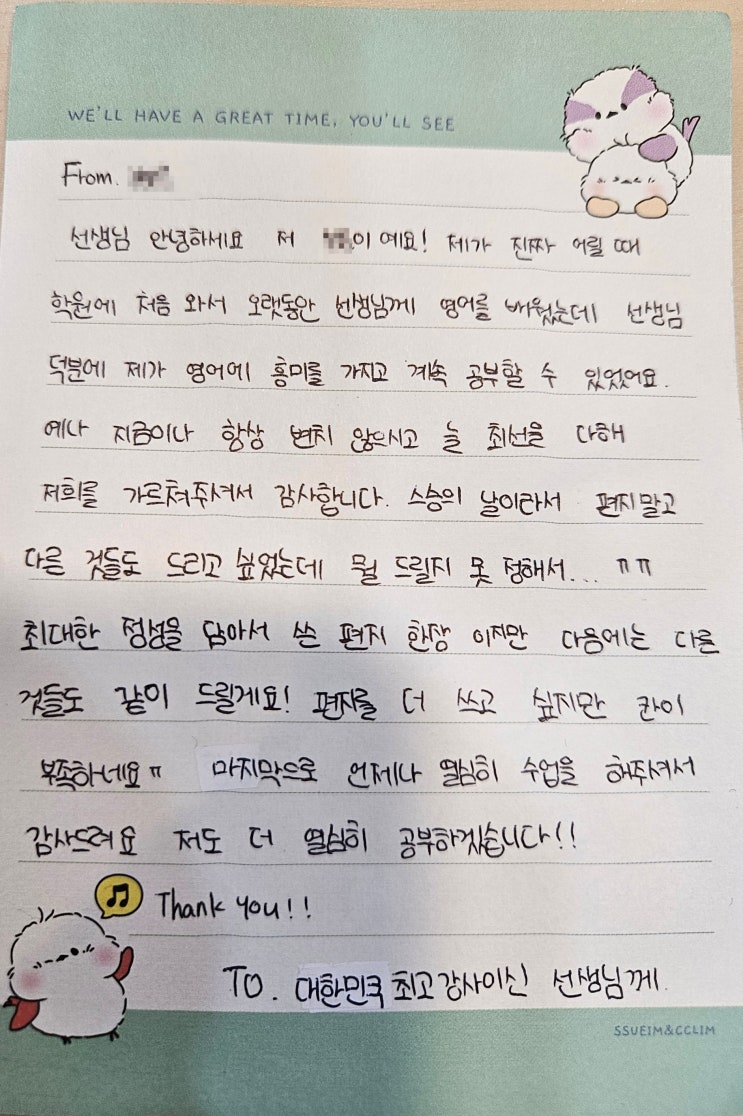 WE'LL HAVE A GREAT TIME, YOU'LL SEE
From.
선생님 안녕하세요 저 이예요! 제가 진짜 어릴 때
학원에 처음 와서 오랫동안 선생님께 영어를 배웠는데 선생님
덕분에 제가 영어에 흥미를 가지고 계속 공부할 수 있었어요.
예나 지금이나 항상 변치 않으시고 늘 최선을 다해
저희를 가르쳐주셔서 감사합니다. 스승의 날이라서 편지말고
다른 것들도 드리고 싶었는데 뭘 드릴지 못 정해서... ㅠㅠ
최대한 정성을 담아서 쓴 편지 한장 이지만 다음에는 다른
것들도 같이 드릴게요! 편지를 더 쓰고 싶지만 칸이
부족하네요ㅠ 마지막으로 언제나 열심히 수업을 해주셔서
감사드려요 저도 더 열심히 공부하겠습니다!!
Thank you!!
TO. 대한민국 최고 강사이신 선생님께.
SSUEIM&CCLIM